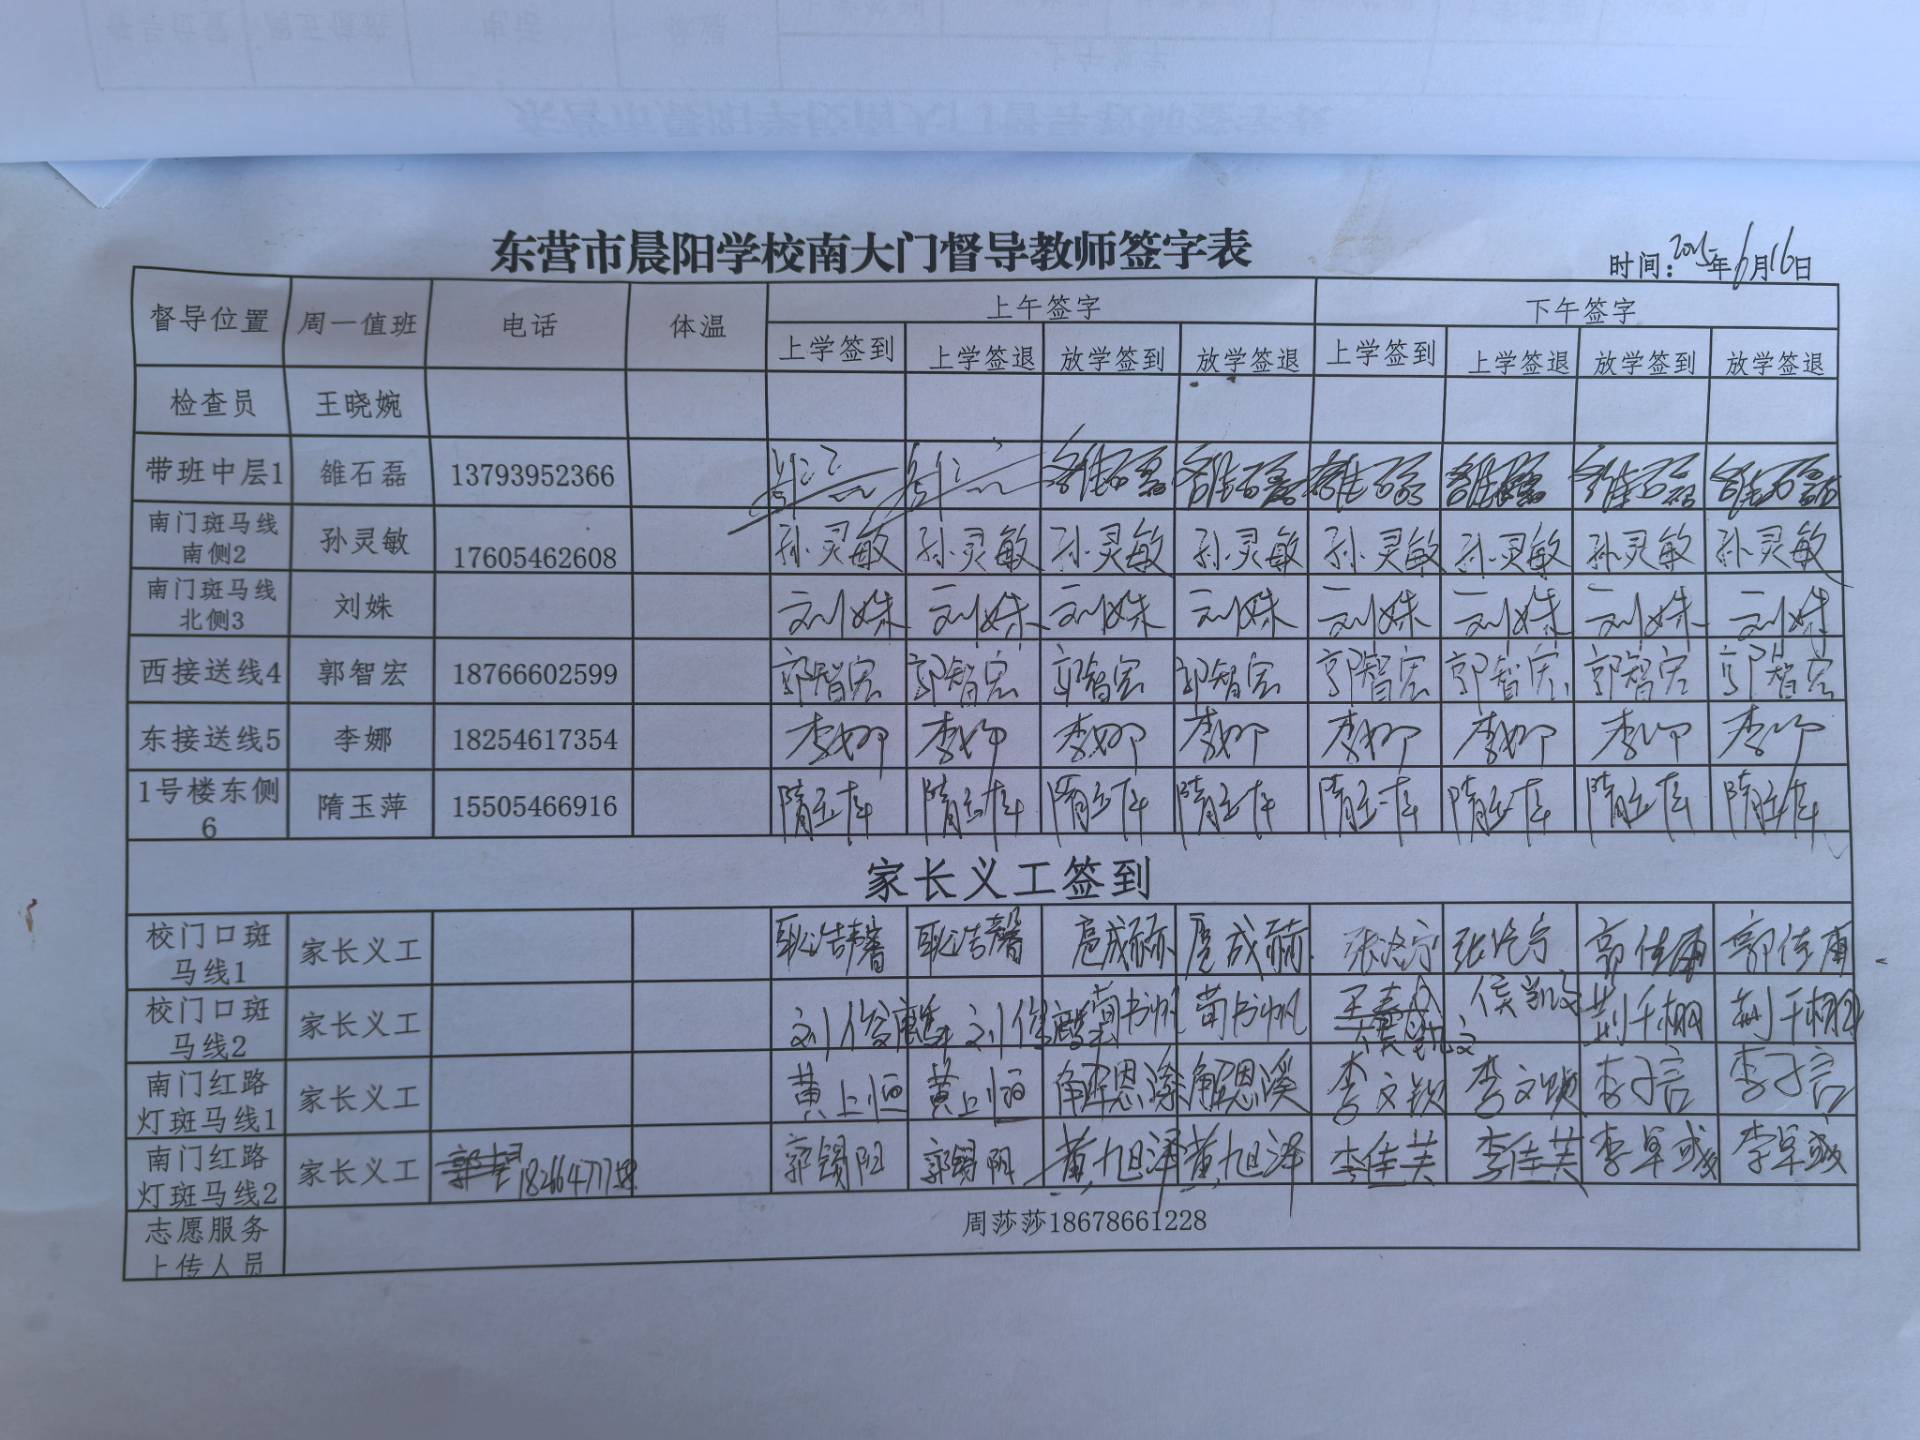 东营市晨阳学校南大门督导教师签字表
时间:2025年6月16日
督导位置 周一值班 电话 体温 上午签字 下午签字
上学签到 上学签退 放学签到 放学签退 上学签到 上学签退 放学签到 放学签退
检查员 王晓婉
带班中层1 雒石磊 13793952366 雒石磊 雒石磊 雒石磊 雒石磊 雒石磊 雒石磊
南门斑马线
南侧2 孙灵敏 17605462608 孙灵敏 孙灵敏 孙灵敏 孙灵敏 孙灵敏 孙灵敏 孙灵敏 孙灵敏
南门斑马线
北侧3 刘姝 刘姝 刘姝 刘姝 刘姝 刘姝 刘姝 刘姝 刘姝
西接送线4 郭智宏 18766602599 郭智宏 郭智宏 郭智宏 郭智宏 郭智宏 郭智宏 郭智宏 郭智宏
东接送线5 李娜 18254617354 李娜 李娜 李娜 李娜 李娜 李娜 李娜 李娜
1号楼东侧
6 隋玉萍 15505466916 隋玉萍 隋玉萍 隋玉萍 隋玉萍 隋玉萍 隋玉萍 隋玉萍 隋玉萍
家长义工签到
校门口斑
马线1 家长义工 耿浩馨 耿浩馨 扈成赫 扈成赫 郭佳雨 郭佳雨
校门口斑
马线2 家长义工 荀书帆 荀书帆 侯凯文 荆千栩 荆千栩
南门红路
灯斑马线1 家长义工 黄上恒 黄上恒 解恩溪 解恩溪 李文锁 李子言 李子言
南门红路
灯斑马线2 家长义工 郭锡阳 郭锡阳 黄旭泽 黄旭泽 李佳芙 李佳芙 李卓彧 李卓彧
志愿服务
上传人员 周莎莎18678661228